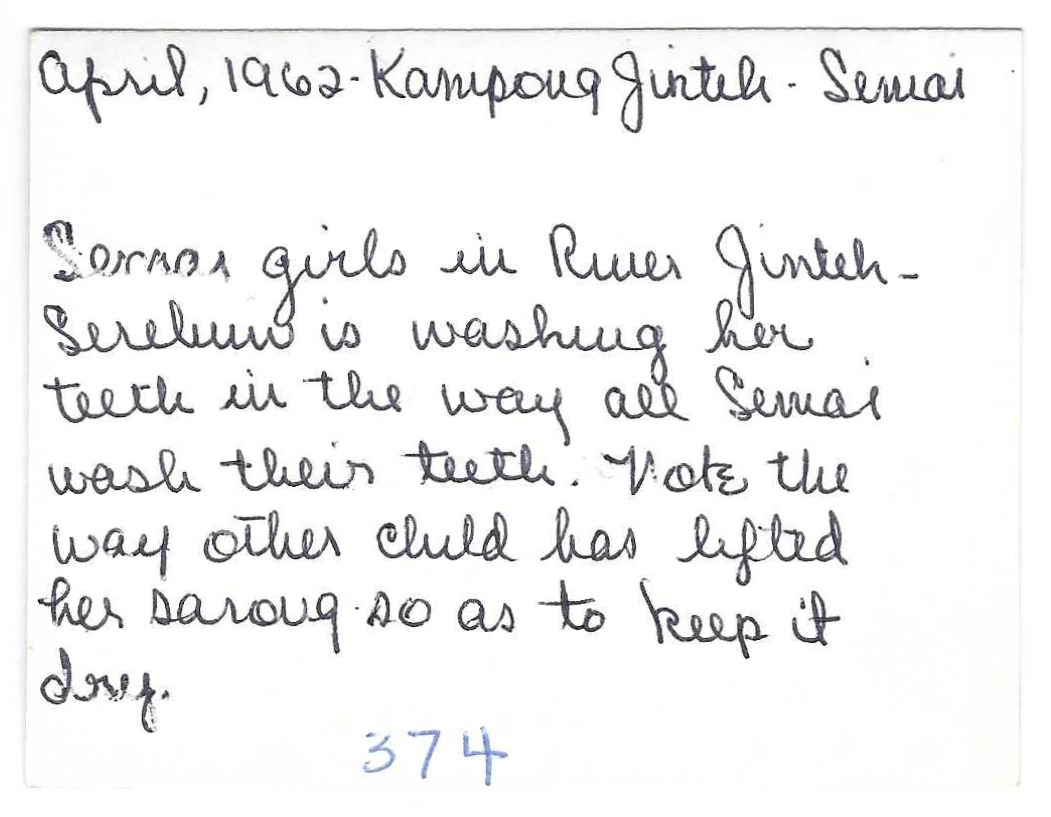 April, 1962 - Kampong Jinteh - Semai
Semai girls in River Jinteh -
is washing her
teeth in the way all Semai
wash their teeth. Note the
way other child has lifted
her sarong so as to keep it
dry.
374